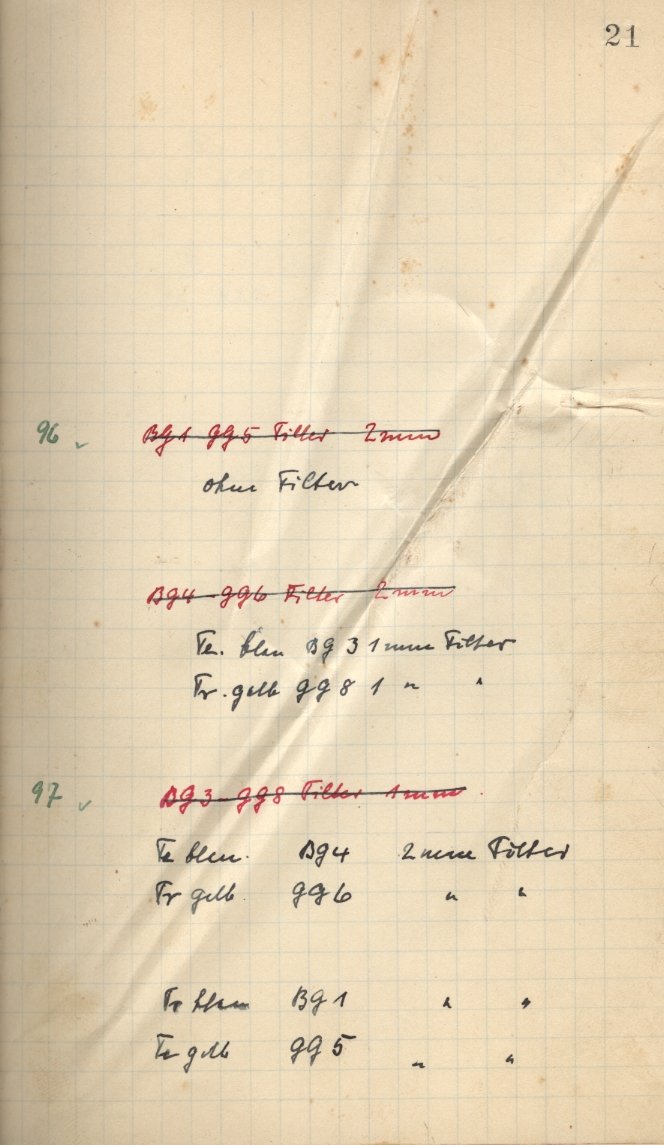 21
96 ✓ BG1 GG5 Filter 2mm
ohne Filter
BG4-GG6 Filter 2mm
Fr. blau BG 3 1mm Filter
Fr. gelb GG 8 1 " "
97 ✓ BG3-GG8 Filter 1mm
Fr blau. BG4 2mm Filter
Fr gelb GG6 " "
Fr blau BG1 " "
Fr gelb GG5 " "